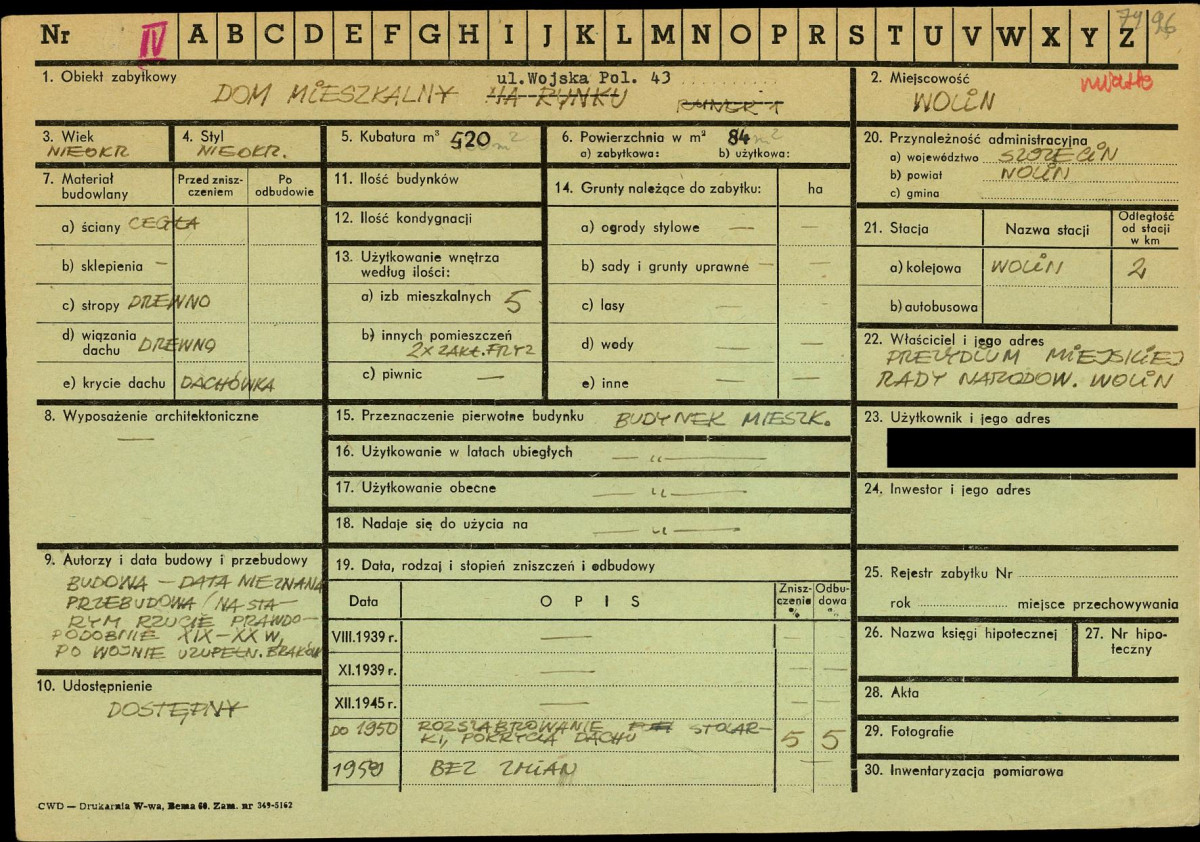 Nr IV A B C D E F G H I J K L M N O P R S T U V W X Y Z 74 96
1. Obiekt zabytkowy
ul.Wojska Pol. 43
DOM MIESZKALNY NA RYNKU RYNEK 1
2. Miejscowość
WOLIN
3. Wiek
NIEOKR
4. Styl
NIEOKR.
5. Kubatura m³ 520
6. Powierzchnia w m² 84 m²
a) zabytkowa: b) użytkowa:
7. Materiał budowlany
Przed zniszczeniem
Po odbudowie
a) ściany CEGŁA
b) sklepienia –
c) stropy DREWNO
d) wiązania dachu DREWNO
e) krycie dachu DACHÓWKA
8. Wyposażenie architektoniczne
—
9. Autorzy i data budowy i przebudowy
BUDOWA – DATA NIEZNANA
PRZEBUDOWA (NA STA-
RYM RZUCIE PRAWDO-
PODOBNIE XIX–XX W,
PO WOJNIE UZUPEŁN. BRAKÓW
10. Udostępnienie
DOSTĘPNY
11. Ilość budynków
12. Ilość kondygnacji
13. Użytkowanie wnętrza
według ilości:
a) izb mieszkalnych 5
b) innych pomieszczeń
2X ZAKŁ. FRYZ
c) piwnic —
14. Grunty należące do zabytku: ha
a) ogrody stylowe — —
b) sady i grunty uprawne — —
c) lasy — —
d) wody — —
e) inne — —
15. Przeznaczenie pierwotne budynku BUDYNEK MIESZK.
16. Użytkowanie w latach ubiegłych — „ —
17. Użytkowanie obecne — „ —
18. Nadaje się do użycia na — „ —
19. Data, rodzaj i stopień zniszczeń i odbudowy
Data O P I S Zniszczenie % Odbudowa %
VIII.1939 r. — — —
XI.1939 r. — — —
XII.1945 r. — — —
DO 1950 ROZSZABROWANIE STOLAR-
KI, POKRYCIA DACHU 5 5
1959 BEZ ZMIAN —
20. Przynależność administracyjna
a) województwo SZCZECIN
b) powiat WOLIN
c) gmina
21. Stacja Nazwa stacji Odległość od stacji w km
a) kolejowa WOLIN 2
b) autobusowa
22. Właściciel i jego adres
PREZYDIUM MIEJSKIEJ
RADY NARODOW. WOLIN
23. Użytkownik i jego adres
24. Inwestor i jego adres
25. Rejestr zabytku Nr
rok miejsce przechowywania
26. Nazwa księgi hipotecznej
27. Nr hipoteczny
28. Akta
29. Fotografie
30. Inwentaryzacja pomiarowa
CWD — Drukarnia W-wa, Bema 60. Zam. nr 349-5162